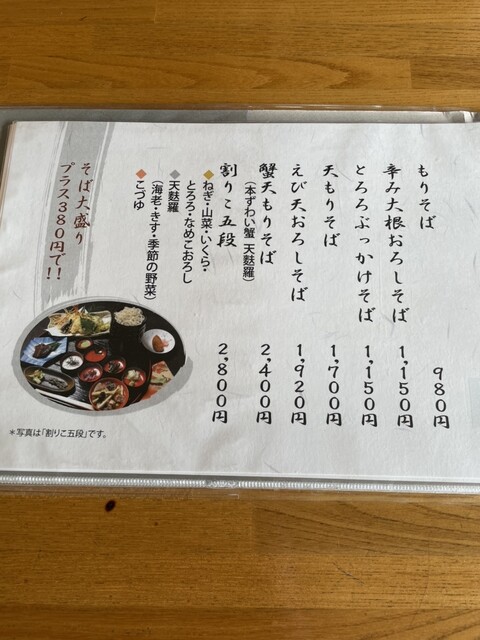 もりそば 980円
辛み大根おろしそば 1,150円
とろろぶっかけそば 1,150円
天もりそば 1,700円
えび天おろしそば 1,920円
蟹天もりそば 2,400円
（本ずわい蟹 天麩羅）
割りこ五段 2,800円
◆ねぎ・山菜・いくら・
とろろ・なめこおろし
◆天麩羅
（海老・きす・季節の野菜）
◆こづゆ
そば大盛り
プラス380円で!!
＊写真は「割りこ五段」です。